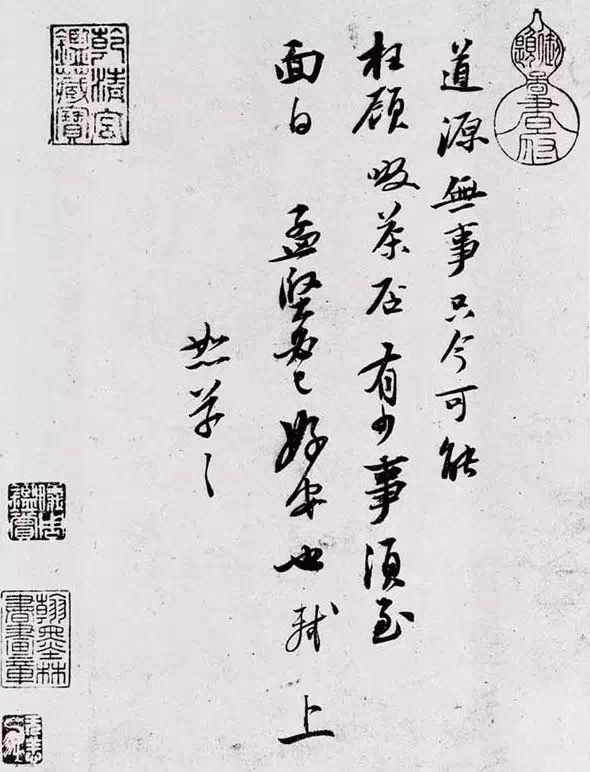 道源無事只今可能
枉顧啜茶否有少事須至
面白 孟堅必已好安也 軾 上
恕草々
書府
乾清宮鑑藏寶
翰墨林書畫章